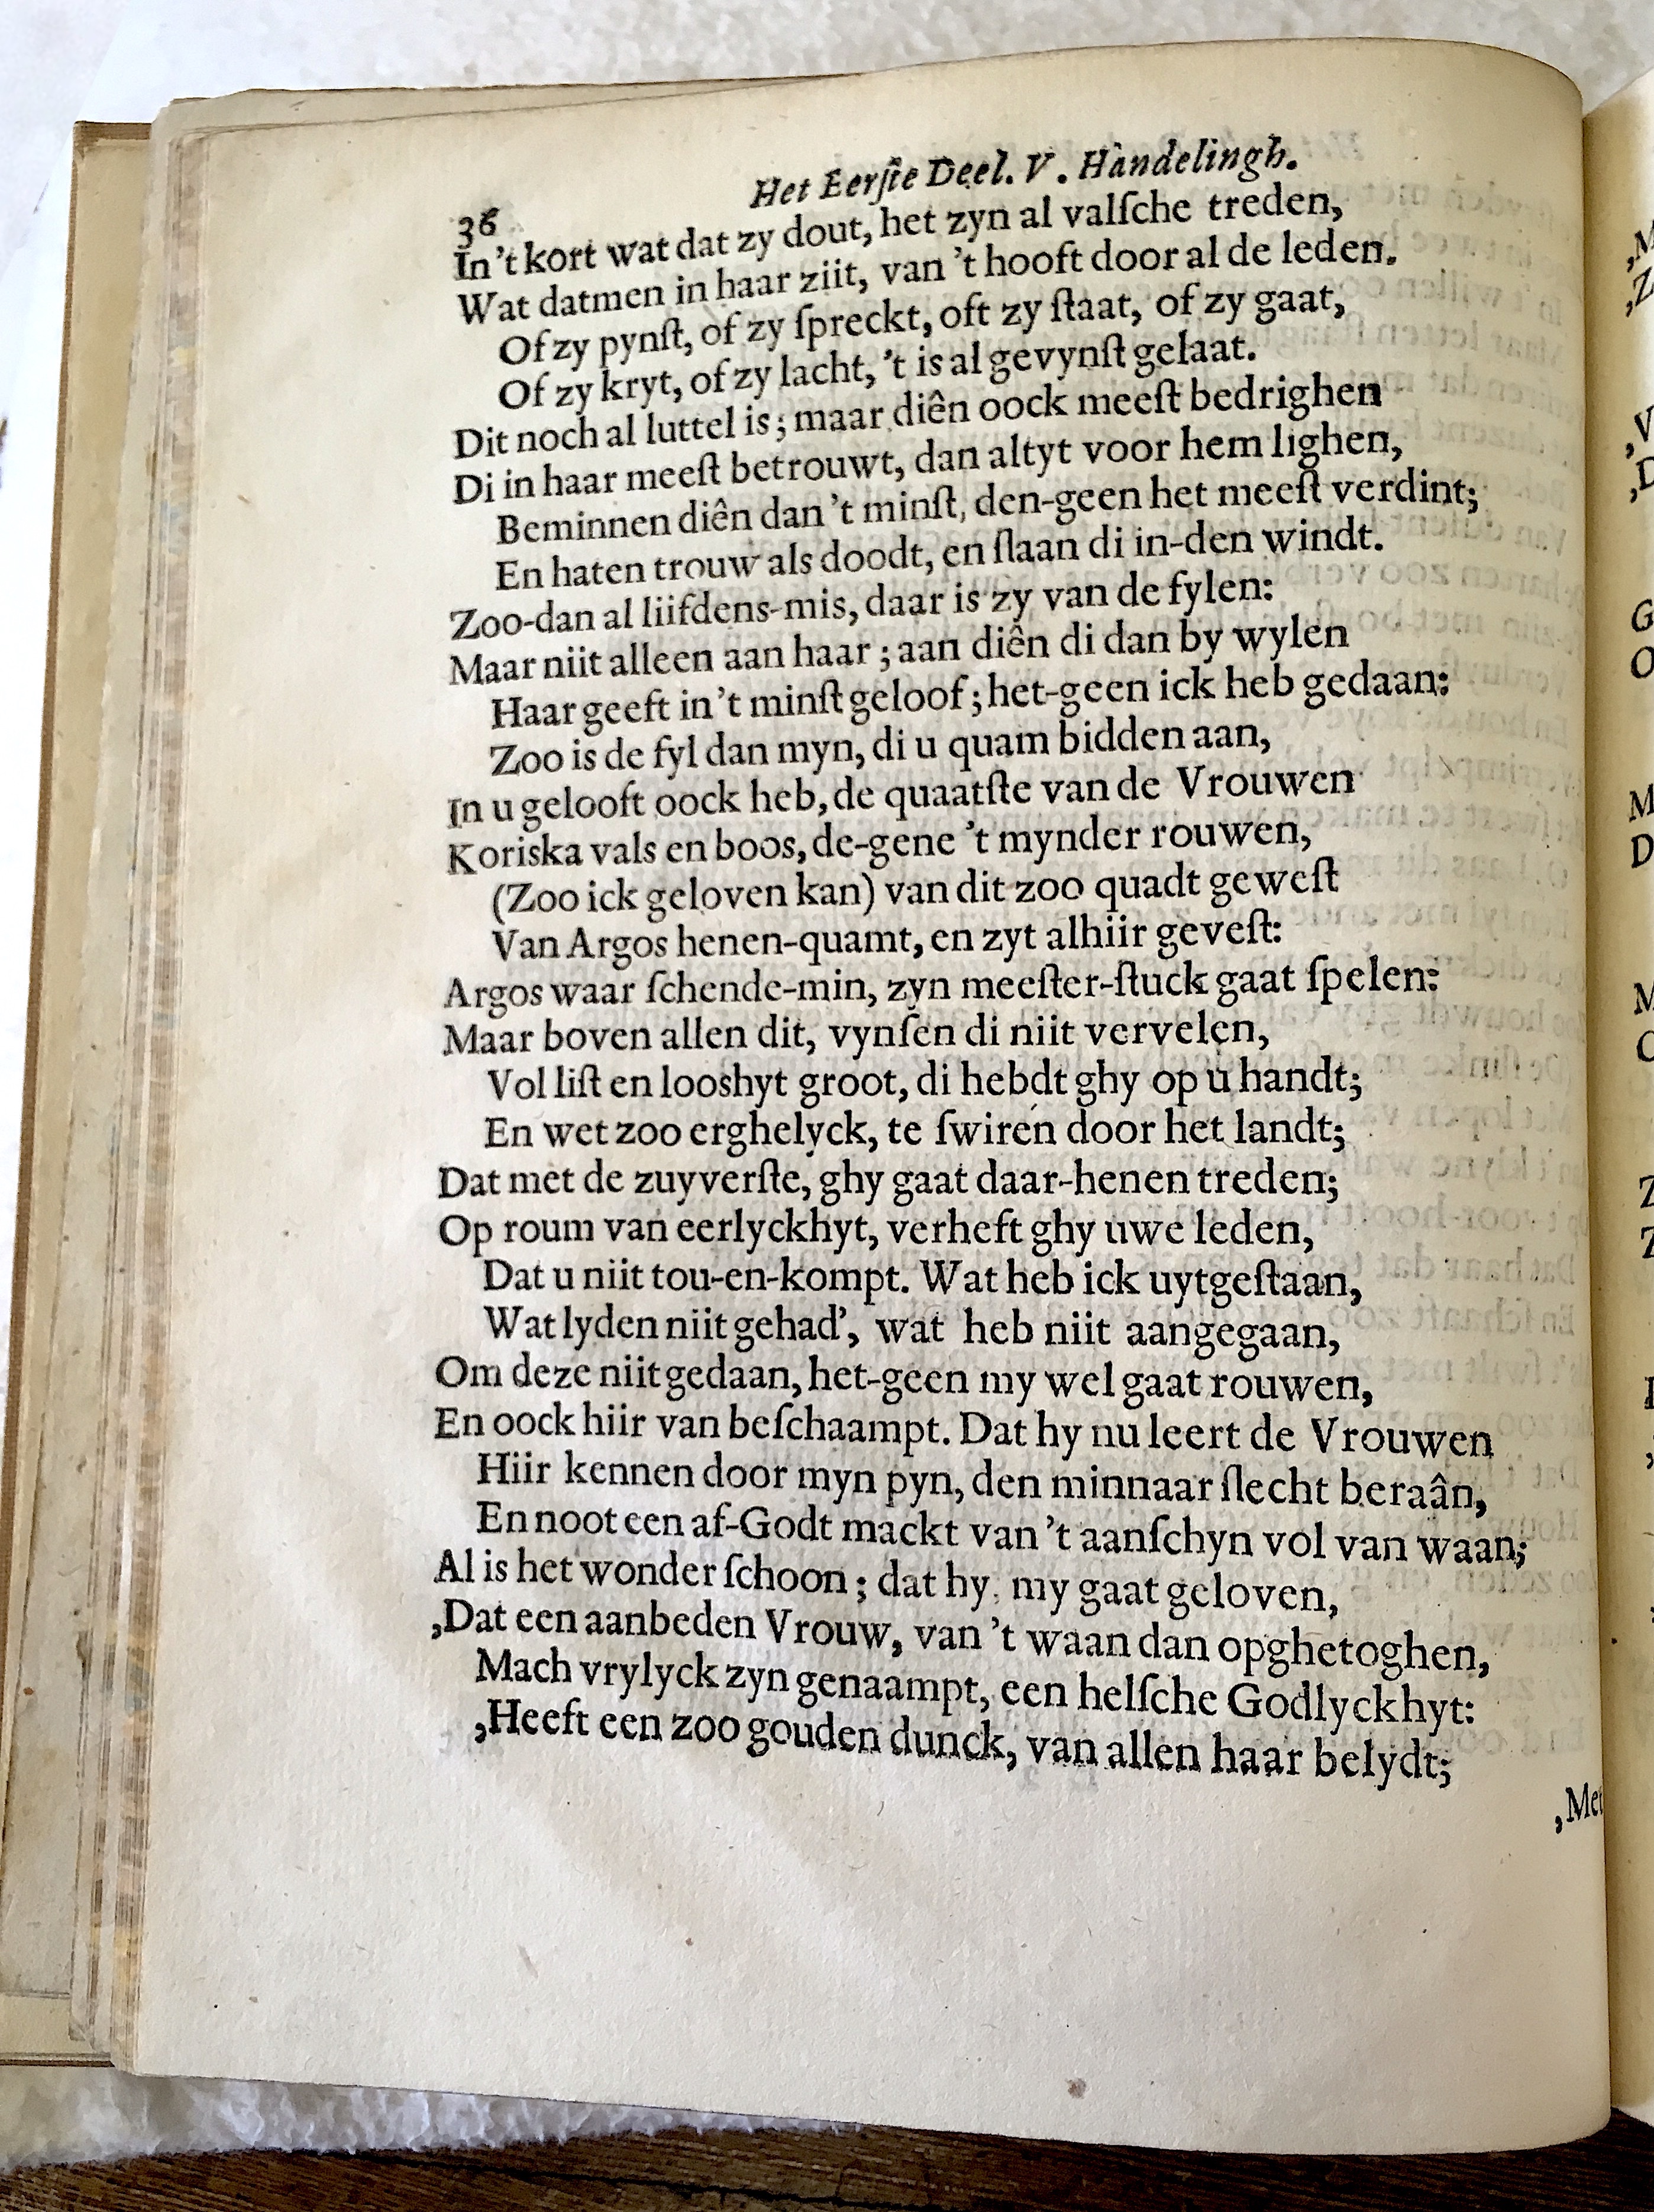 Het Eerſte Deel. V. Handelingh.
36
In 't kort wat dat zy dout, het zyn al valſche treden,
Wat datmen in haar ziit, van 't hooft door al de leden.
Of zy pynſt, of zy ſpreckt, oft zy ſtaat, of zy gaat,
Of zy kryt, of zy lacht, 't is al gevynſt gelaat.
Dit noch al luttel is; maar diên oock meeſt bedrighen
Di in haar meeſt betrouwt, dan altyt voor hem lighen,
Beminnen diên dan 't minſt, den-geen het meeſt verdint;
En haten trouw als doodt, en ſlaan di in-den windt.
Zoo-dan al liifdens-mis, daar is zy van de fylen:
Maar niit alleen aan haar; aan diên di dan by wylen
Haar geeft in 't minſt geloof; het-geen ick heb gedaan:
Zoo is de fyl dan myn, di u quam bidden aan,
In u gelooft oock heb, de quaatſte van de Vrouwen
Koriska vals en boos, de-gene 't mynder rouwen,
(Zoo ick geloven kan) van dit zoo quadt geweſt
Van Argos henen-quamt, en zyt alhiir geveſt:
Argos waar ſchende-min, zyn meeſter-ſtuck gaat ſpelen:
Maar boven allen dit, vynſen di niit vervelen,
Vol liſt en looshyt groot, di hebdt ghy op u handt;
En wet zoo erghelyck, te ſwiren door het landt;
Dat met de zuyverſte, ghy gaat daar-henen treden;
Op roum van eerlyckhyt, verheft ghy uwe leden,
Dat u niit tou-en-kompt. Wat heb ick uytgeſtaan,
Wat lyden niit gehad', wat heb niit aangegaan,
Om deze niit gedaan, het-geen my wel gaat rouwen,
En oock hiir van beſchaampt. Dat hy nu leert de Vrouwen
Hiir kennen door myn pyn, den minnaar ſlecht beraân,
En noot een af-Godt mackt van 't aanſchyn vol van waan;
Al is het wonder ſchoon; dat hy my gaat geloven,
,Dat een aanbeden Vrouw, van 't waan dan opghetoghen,
Mach vrylyck zyn genaampt, een helſche Godlyckhyt:
,Heeft een zoo gouden dunck, van allen haar belydt;
,Met